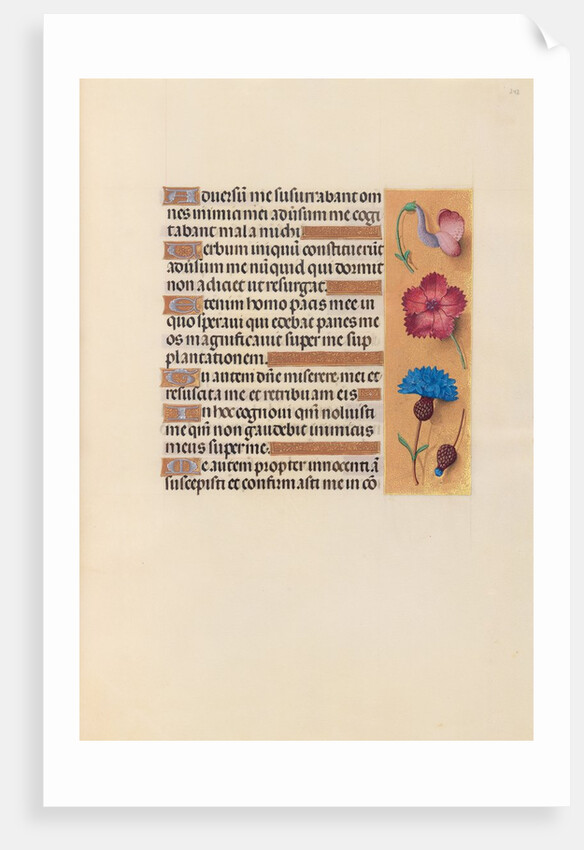 Aduersū me susurrabant om
nes inimici mei adusum me cogi
tabant mala michi
Uerbum iniquū constituerūt
adusum me nūquid qui dormit
non adiciet ut resurgat.
Etenim homo pacis mee in
quo speraui qui edebat panes me
os magnificauit super me sup
plantationem.
Tu autem dn̄e miserere mei et
resuscita me et retribuam eis
In hoc cognoui qm̄ noluisti
me qm̄ non gaudebit inimicus
meus super me.
Me autem propter innocentiā
suscepisti et confirmasti me in cō